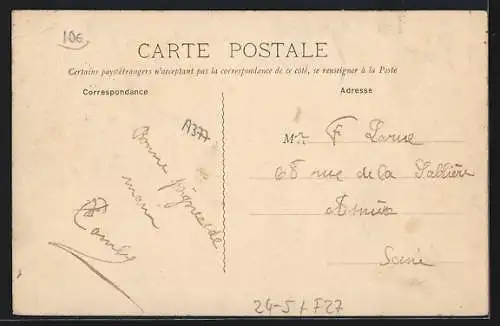 10€
CARTE POSTALE
Certains pays étrangers n'acceptant pas la correspondance de ce côté, se renseigner à la Poste
Correspondance
Adresse
A377
Bonne
maman
Mr F Larue
68 rue de la Sablière
Asnières
Seine
24-5 / F27